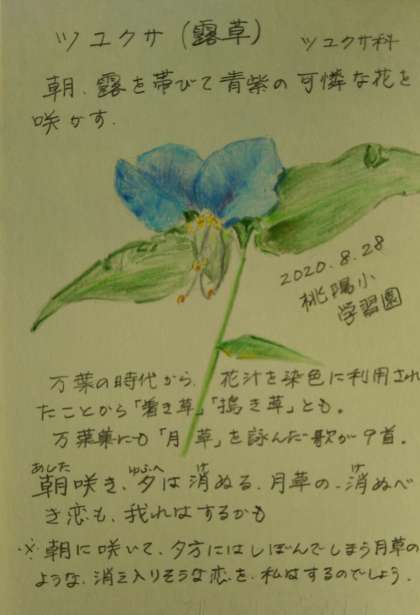 ツユクサ(露草) ツユクサ科
朝、露を帯びて青紫の可憐な花を
咲かす.
2020.8.28
桃陽小
学習園
万葉の時代から、花汁を染色に利用され
たことから「着き草」「搗き草」とも。
万葉集にも「月草」を詠んだ歌が9首。
あした ゆふへ け け
朝咲き、夕は消ぬる、月草の、消ぬべ
き恋も、我れはするかも
※ 朝に咲いて、夕方にはしぼんでしまう月草の
ような、消え入りそうな恋を、私はするのでしょう.